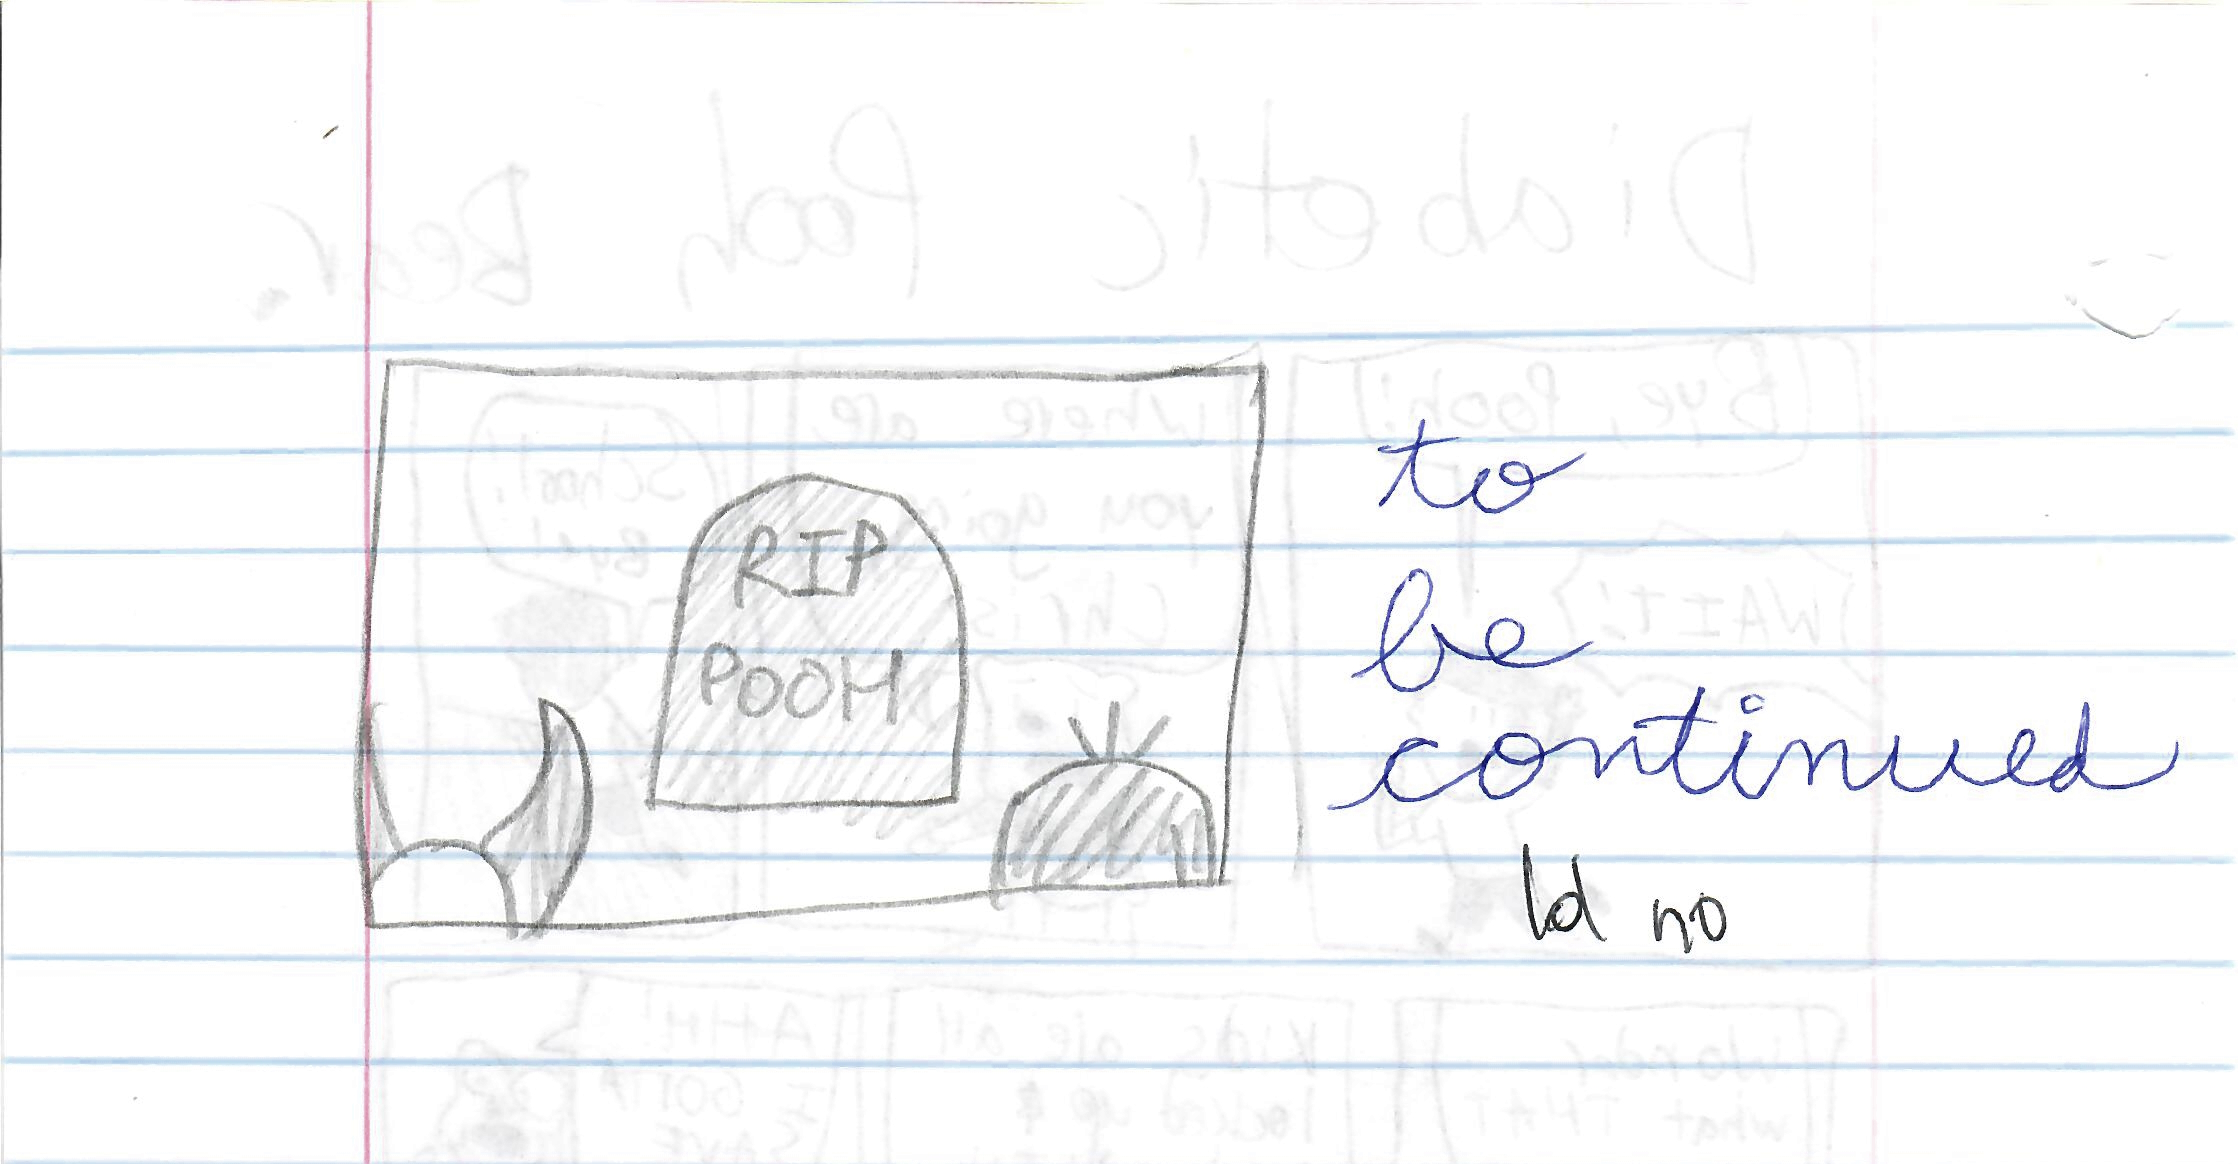 RIP
POOH
to
be
continued
ld no